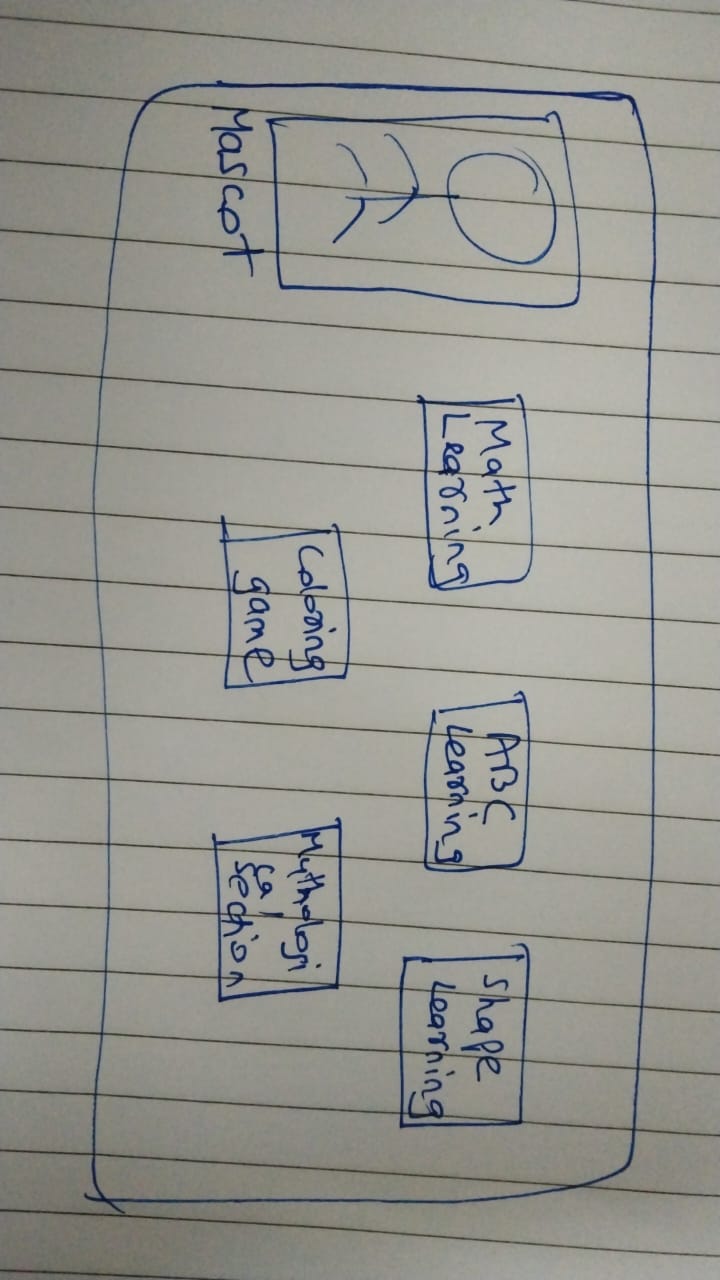 Math
Learning
ABC
Learning
Shape
Learning
Coloring
game
Mythologi
cal
Section
Mascot